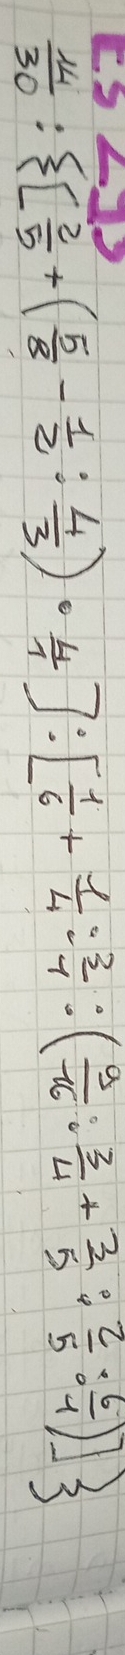 ES 293
14/30 : {[2/5 + (5/8 - 1/2 : 4/3) · 4/1] : [1/6 + 1/4 : 3/1 · (9/16 : 3/4 + 3/5 : 2/5 · 6/1)]}